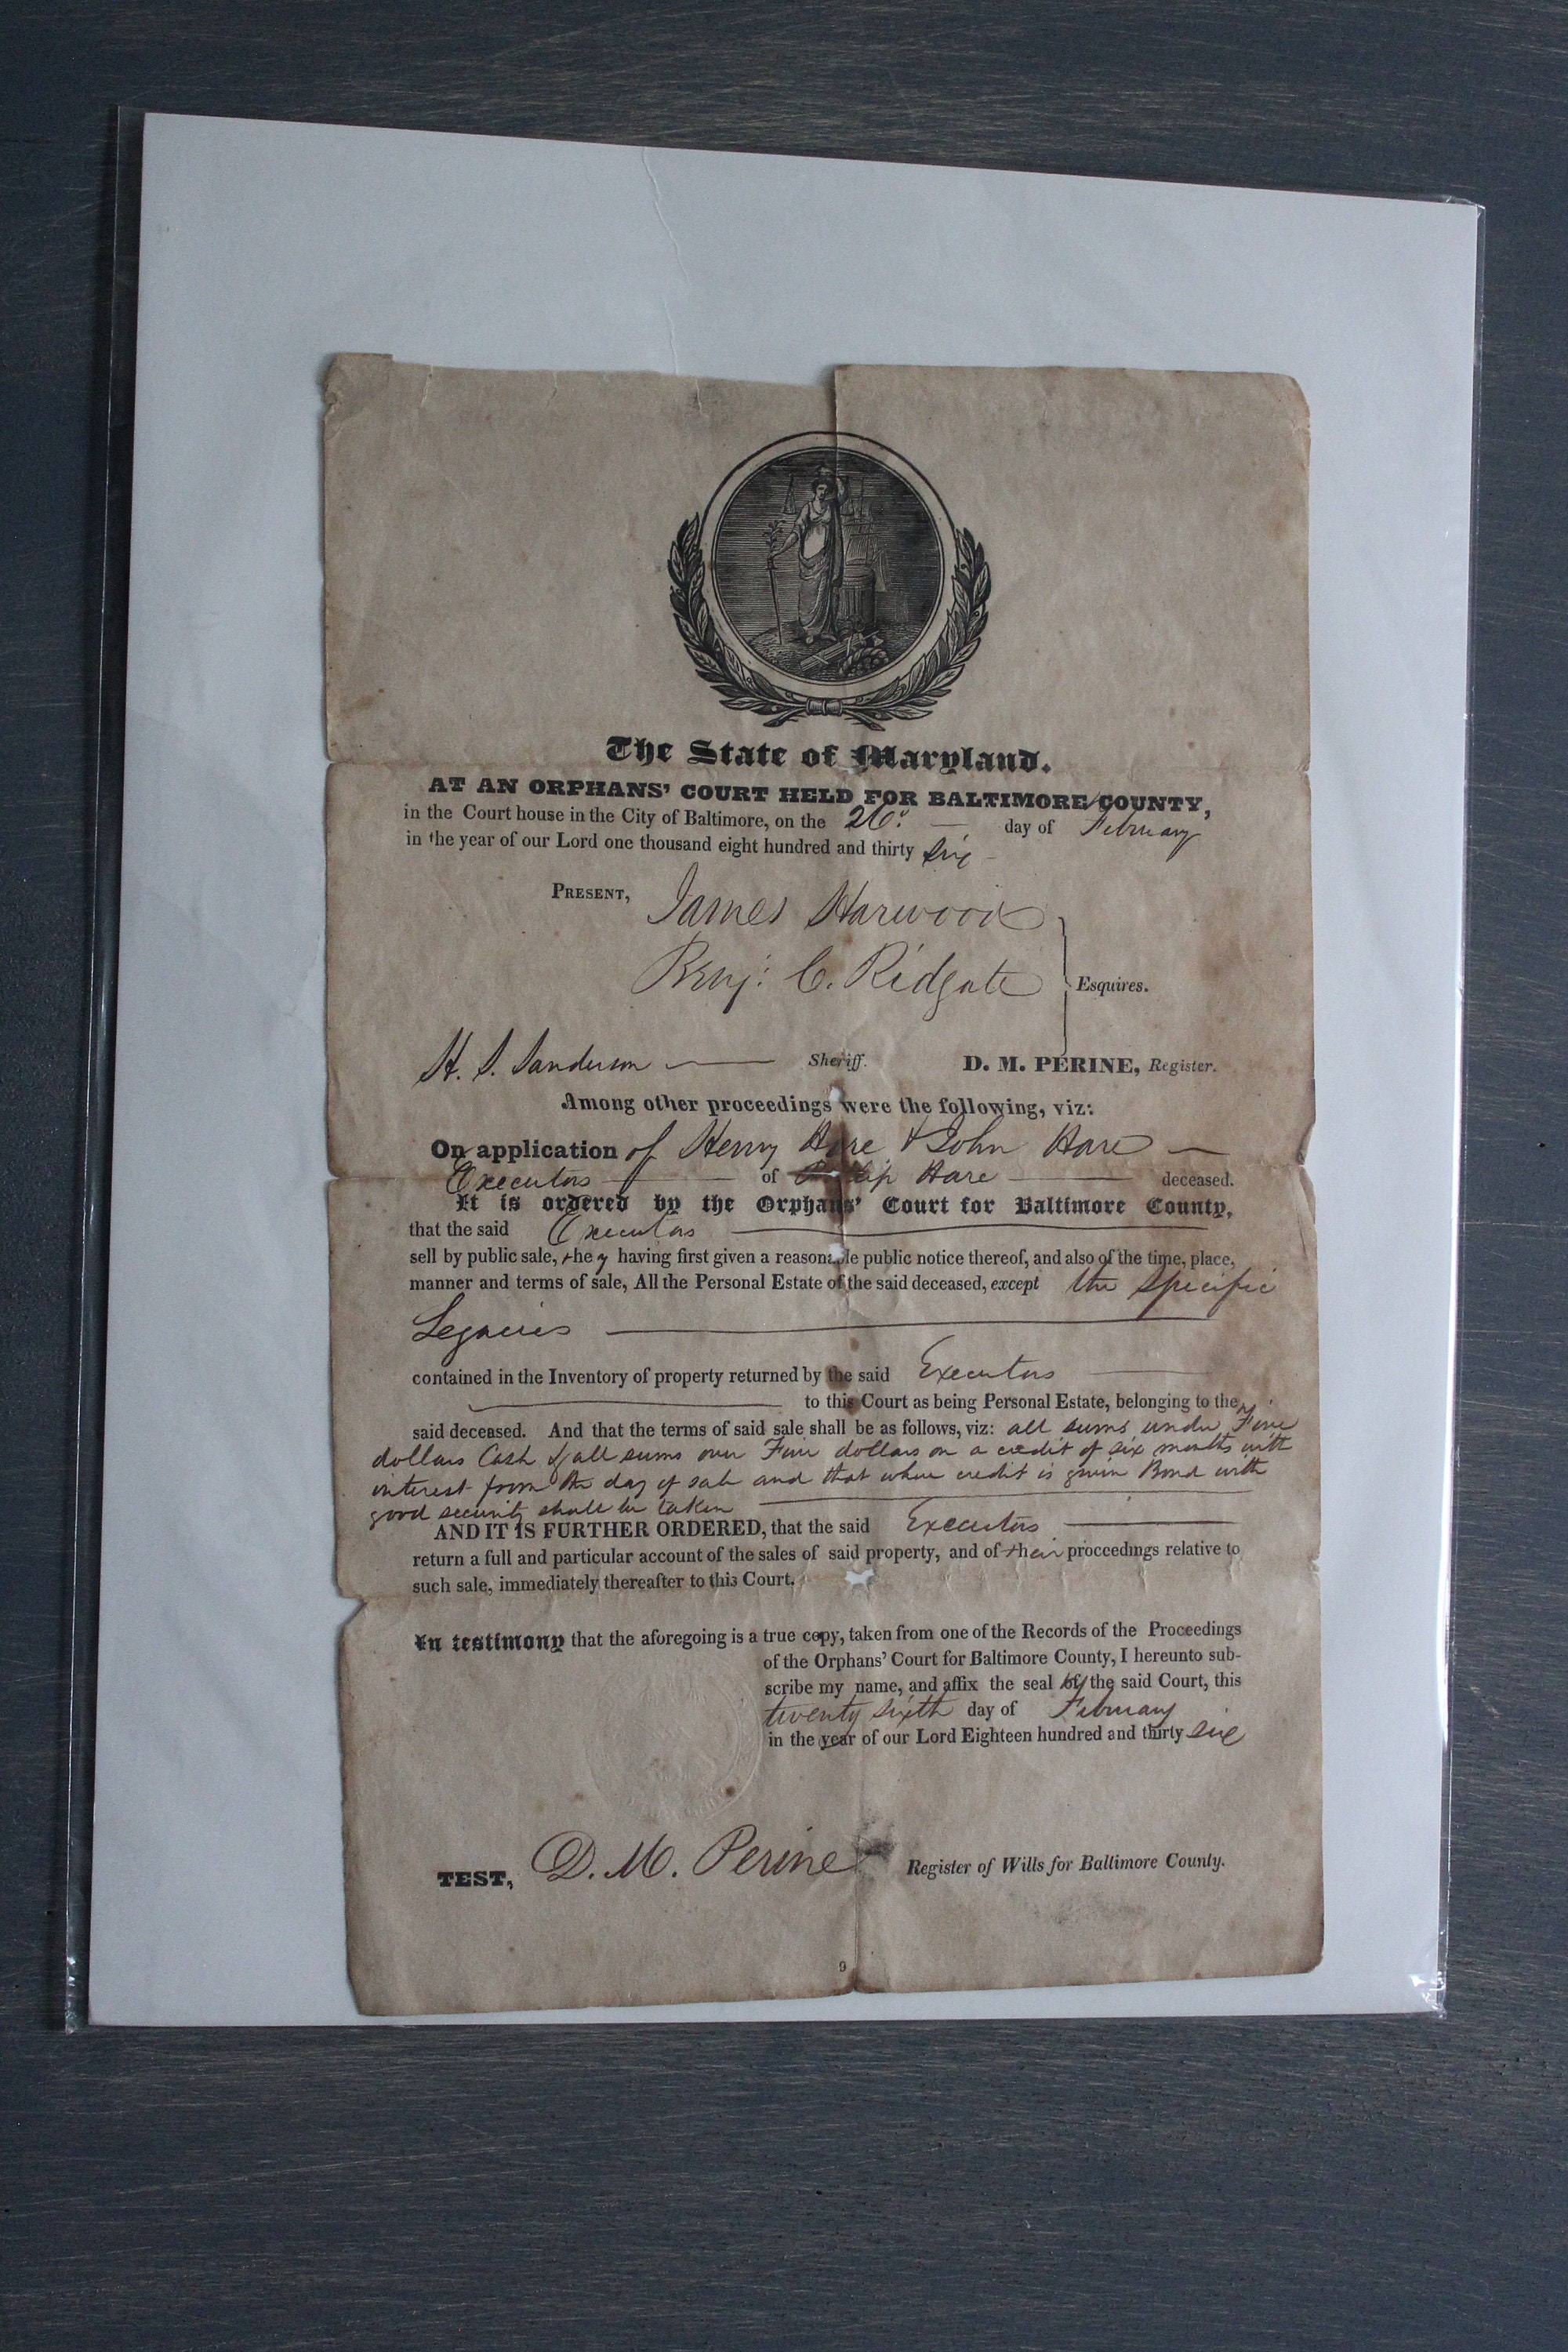 The State of Maryland.
AT AN ORPHANS' COURT HELD FOR BALTIMORE COUNTY,
in the Court house in the City of Baltimore, on the 26. — day of February
in the year of our Lord one thousand eight hundred and thirty six –
PRESENT, James Harwood
Benj: C. Ridgate Esquires.
H. S. Sanderson — Sheriff. D. M. PERINE, Register.
Among other proceedings were the following, viz:
On application of Henry Hare & John Hare —
Executors — of Hare — deceased.
It is ordered by the Orphans' Court for Baltimore County,
that the said Executors —
sell by public sale, they having first given a reasonable public notice thereof, and also of the time, place,
manner and terms of sale, All the Personal Estate of the said deceased, except the Specific
Legacies —
contained in the Inventory of property returned by the said Executors —
— to this Court as being Personal Estate, belonging to the
said deceased. And that the terms of said sale shall be as follows, viz: all sums under Five
dollars Cash & all sums over Five dollars on a credit of six months with
interest from the day of sale and that where credit is given Bond with
good security shall be taken —
AND IT IS FURTHER ORDERED, that the said Executors —
return a full and particular account of the sales of said property, and of their proceedings relative to
such sale, immediately thereafter to this Court.
In testimony that the aforegoing is a true copy, taken from one of the Records of the Proceedings
of the Orphans' Court for Baltimore County, I hereunto sub-
scribe my name, and affix the seal of the said Court, this
twenty sixth day of February
in the year of our Lord Eighteen hundred and thirty six
TEST, D. M. Perine Register of Wills for Baltimore County.
9